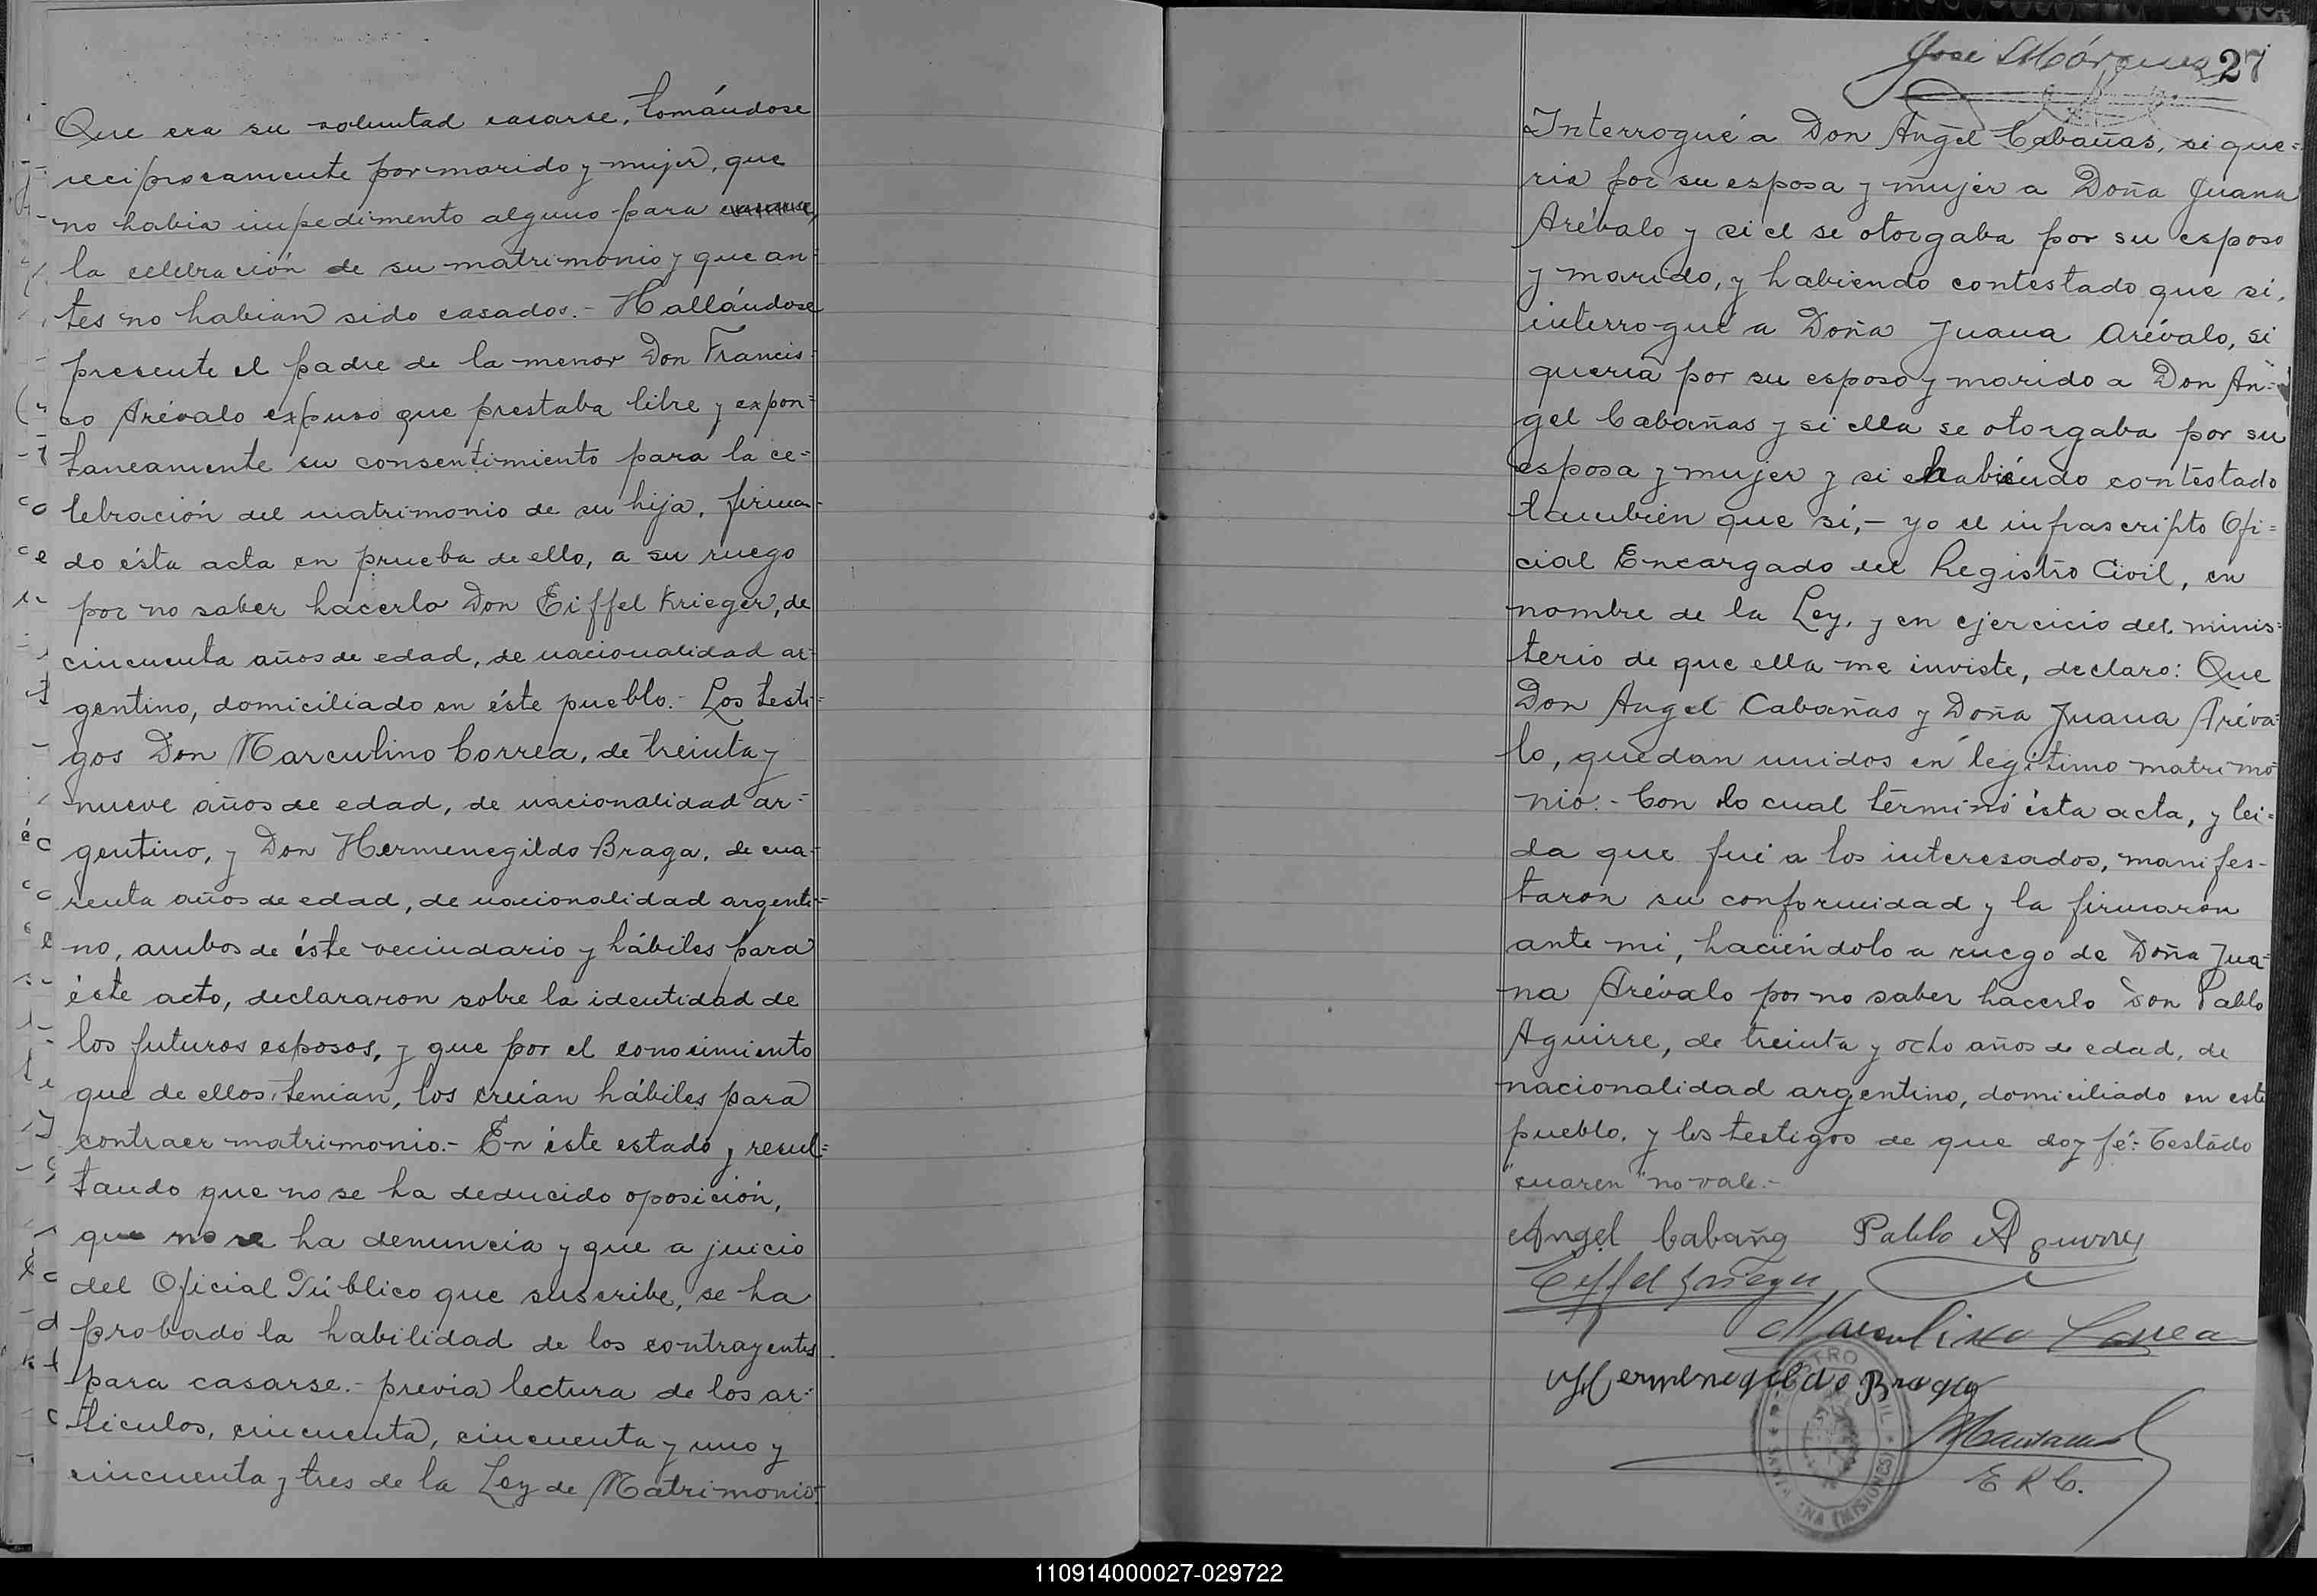 Que era su voluntad casarse, tomándose
reciprocamente por marido y mujer, que
no habia impedimento alguno para
la celebración de su matrimonio y que an=
tes no habian sido casados.- Hallándose
presente el padre de la menor Don Francis=
co Arévalo expuso que prestaba libre y expon=
taneamente su consentimiento para la ce=
lebración del matrimonio de su hija, firman-
do ésta acta en prueba de ello, a su ruego
por no saber hacerlo Don Eiffel Krieger, de
cincuenta años de edad, de nacionalidad ar=
gentino, domiciliado en éste pueblo.- Los testi=
gos Don Marculino Correa, de treinta y
nueve años de edad, de nacionalidad ar=
gentino, y Don Hermenegildo Braga, de cua-
renta años de edad, de nacionalidad argenti=
no, ambos de éste vecindario y hábiles para
éste acto, declararon sobre la identidad de
los futuros esposos, y que por el conocimiento
que de ellos tenian, los creían hábiles para
contraer matrimonio.- En éste estado y resul=
tando que no se ha deducido oposición,
que no se ha denuncia y que a juicio
del Oficial Público que suscribe, se ha
probado la habilidad de los contrayentes
para casarse.- previa lectura de los ar=
ticulos, cincuenta, cincuenta y uno y
cincuenta y tres de la Ley de Matrimonio.
José Márquez 27
Interrogué a Don Angel Cabañas, si que=
ria por su esposa y mujer a Doña Juana
Arévalo y si el se otorgaba por su esposo
y marido, y habiendo contestado que sí,
interrogué a Doña Juana Arévalo, si
queria por su esposo y marido a Don An=
gel Cabañas y si ella se otorgaba por su
esposa y mujer y si habiéndo contestado
tambien que sí,- yo el infrascripto Ofi=
cial Encargado del Registro Civil, en
nombre de la Ley, y en ejercicio del minis=
terio de que ella me inviste, declaro: Que
Don Angel Cabañas y Doña Juana Aréva=
lo, quedan unidos en legitimo matrimo
nio.- Con lo cual términó ésta acta, y lei=
da que fué a los interesados, manifes-
taron su conformidad y la firmaron
ante mi, haciéndolo a ruego de Doña Jua=
na Arévalo por no saber hacerlo Don Pablo
Aguirre, de treinta y ocho años de edad, de
nacionalidad argentino, domiciliado en este
pueblo, y los testigos de que doy fé.- Testádo
"cuaren" no vale.-
Angel Cabañas Pablo Aguirre
Eiffel Krieger
Marculino Correa
Hermenegildo Braga
E R C.
110914000027-029722